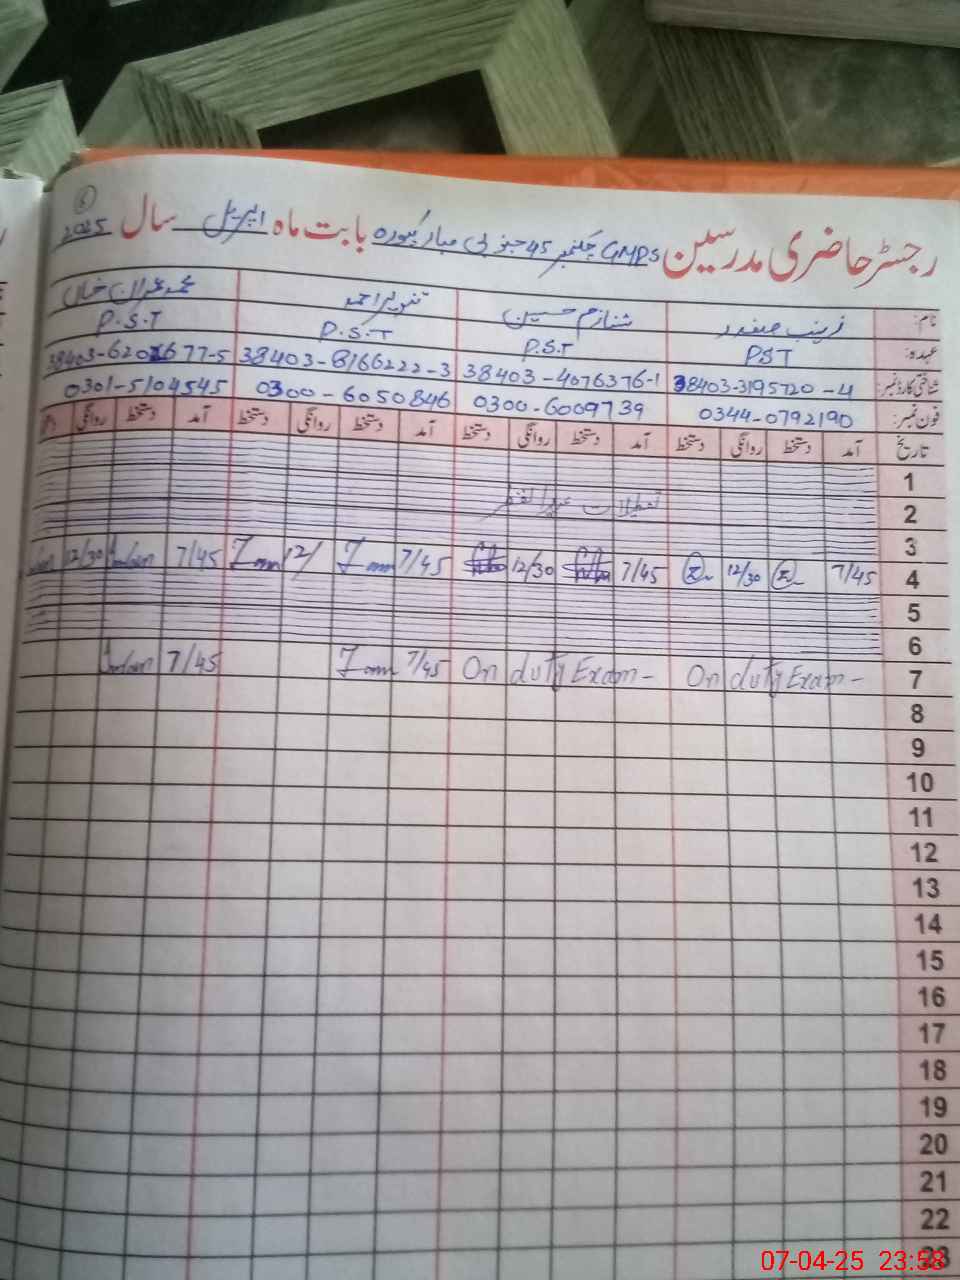 6
رجسٹر حاضری مدرسین GMPS چکنمبر 45 جنوبی مبارکپورہ بابت ماہ اپریل سال 2025
نام: زینب صفدر تنویر احمد محمد عمران خان
عہدہ: PST P.S.T P.S.T P.S.T
شناختی کارڈ نمبر: 38403-3195720-4 38403-4076376-1 38403-8166222-3
فون نمبر: 0344-0792190 0300-6009739 0300-6050846 0301-5104545
تاریخ آمد دستخط روانگی دستخط آمد دستخط روانگی دستخط آمد دستخط روانگی دستخط آمد دستخط روانگی
1
2 تعطیلات عیدالفطر
3
4 7/45 12/30 7/45 12/30 7/45 12/ 7/45 12/30
5
6
7 On duty Exam- On duty Exam- 7/45 7/45
8
9
10
11
12
13
14
15
16
17
18
19
20
21
22
23
07-04-25 23:58